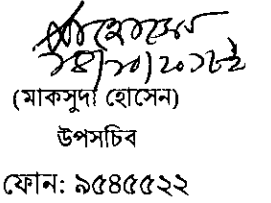 (মাকসুদা হোসেন)
উপসচিব
ফোন: ৯৫৪৫৫২২